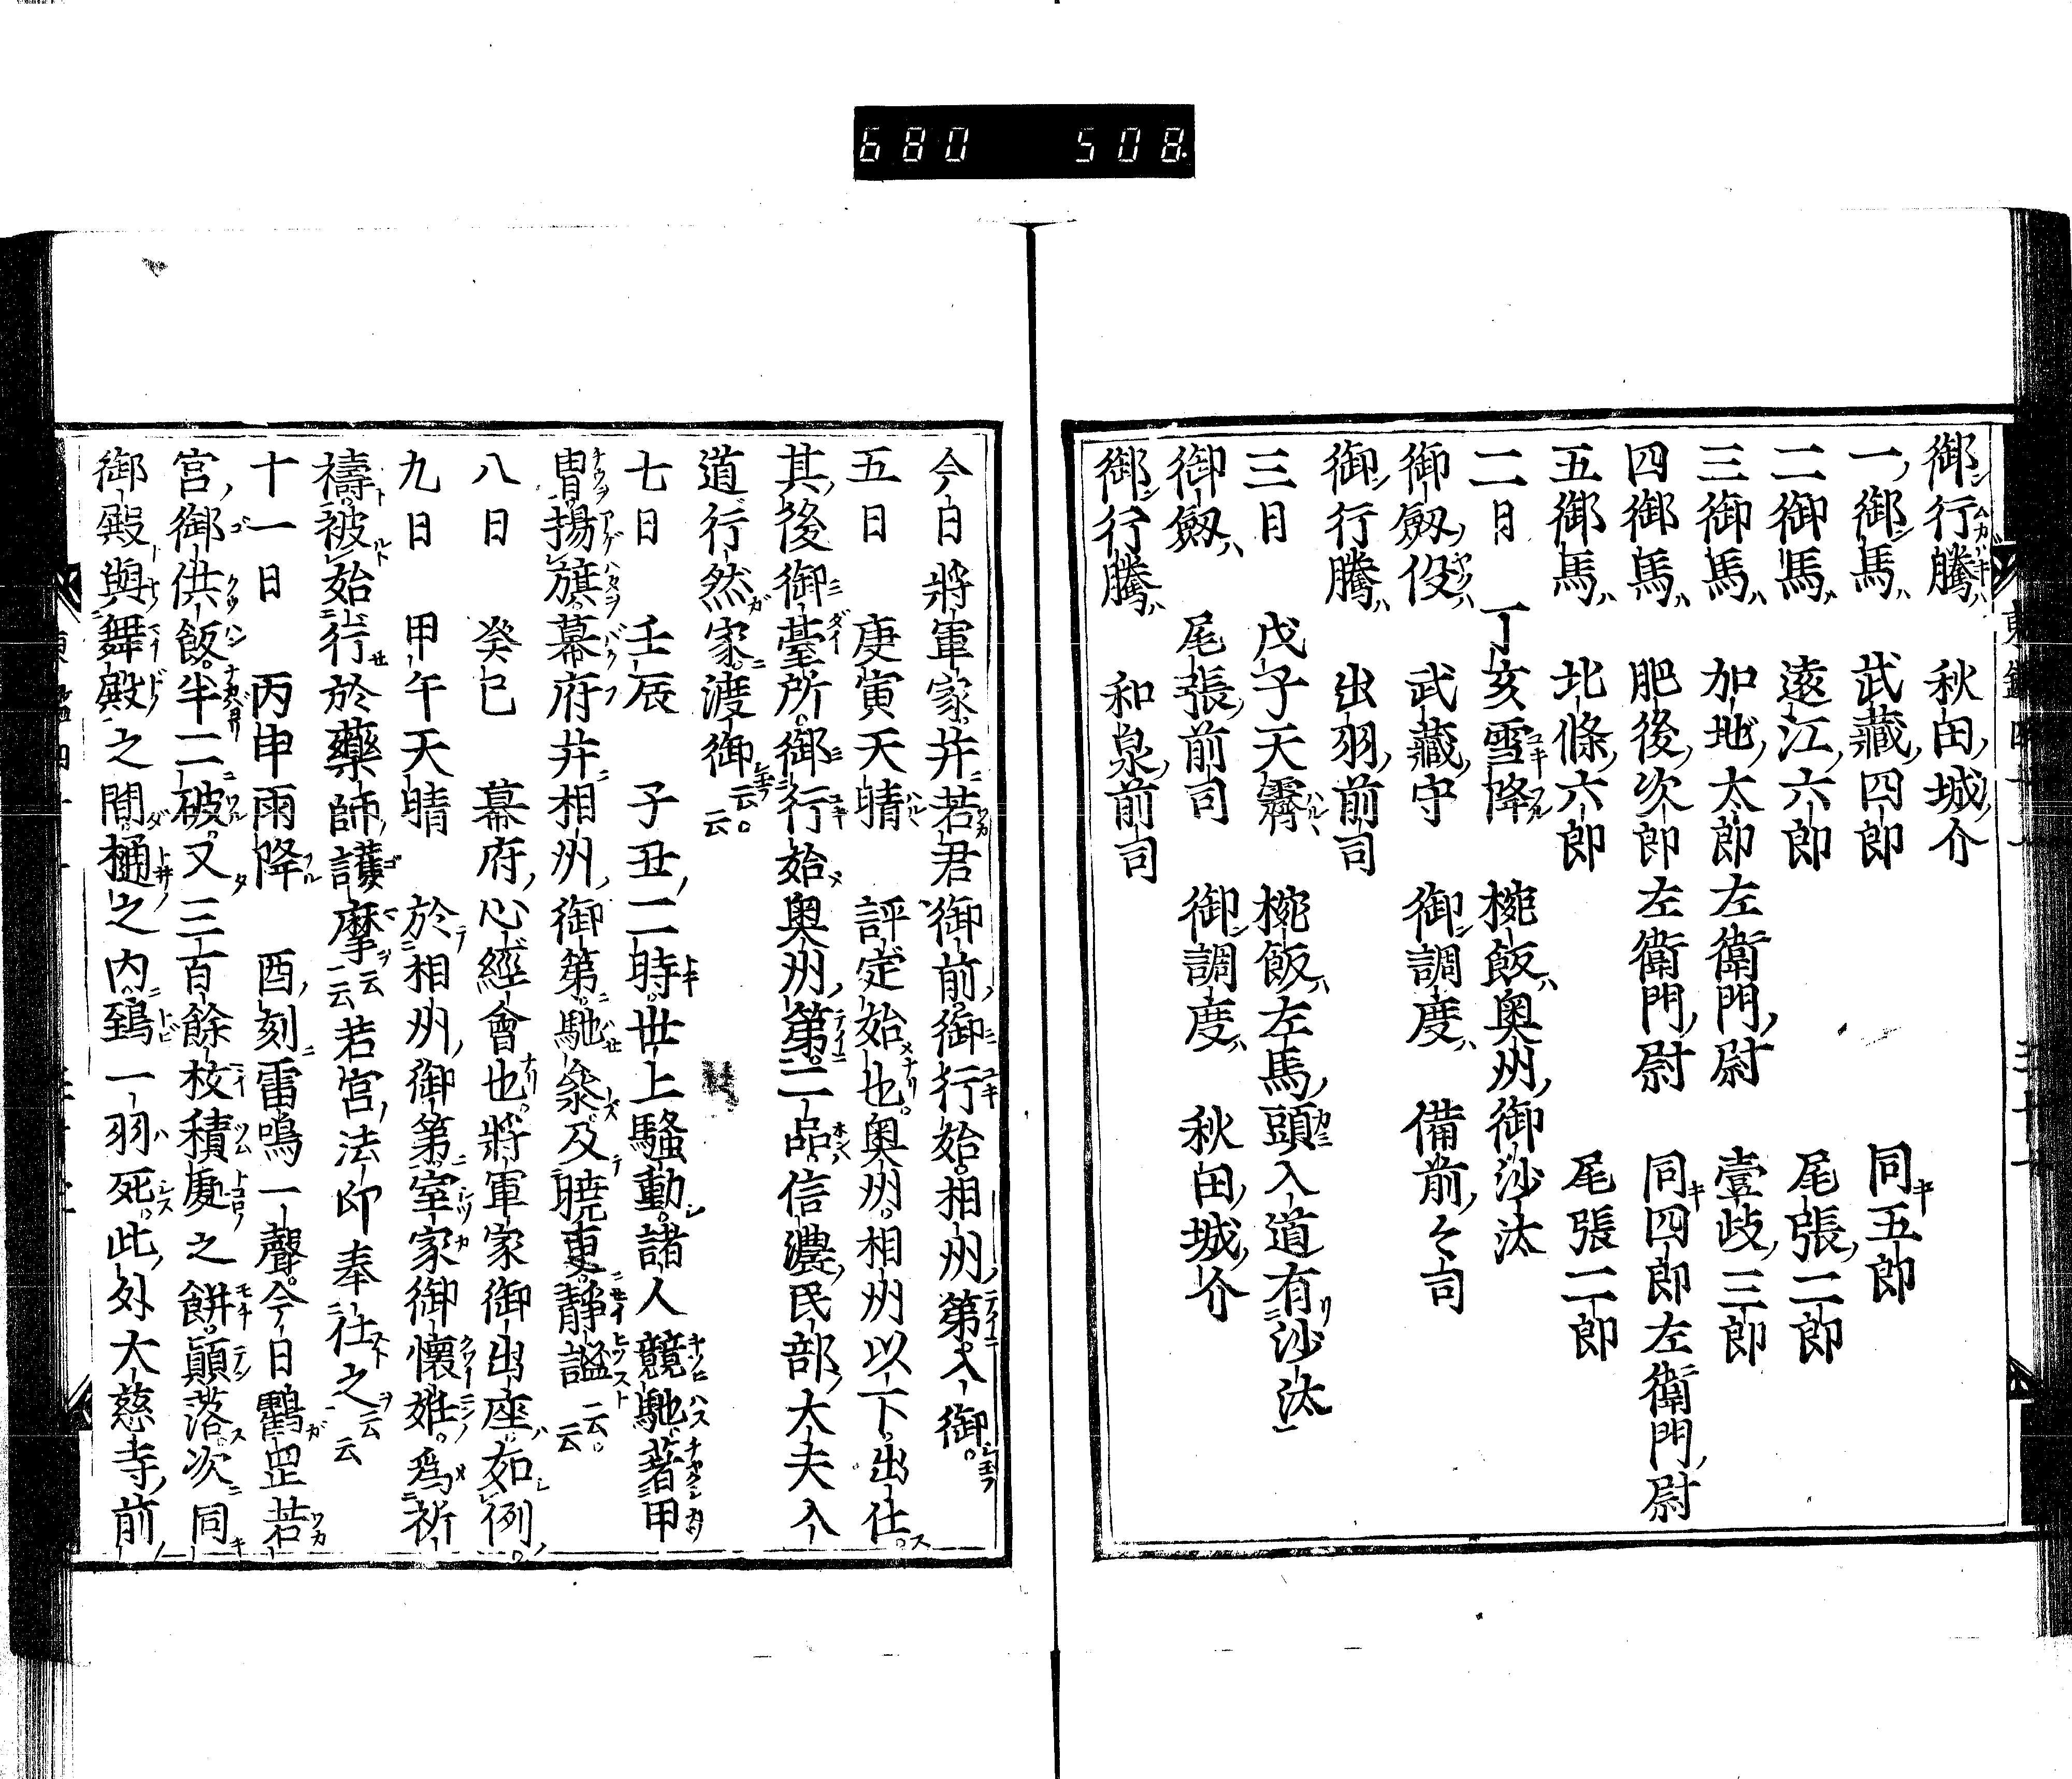 680 508
御行騰 秋田城介
一御馬 武藏四郎 同五郎
二御馬 遠江六郎 尾張二郎
三御馬 加地太郎左衛門尉 壹岐三郎
四御馬 肥後次郎左衛門尉 同四郎左衛門尉
五御馬 北條六郎 尾張二郎
二日 丁亥雪降 椀飯奧州御沙汰
御劔役 武藏守 御調度 備前々司
御行騰 出羽前司
三日 戊子天霽 椀飯左馬頭入道有沙汰
御劔 尾張前司 御調度 秋田城介
御行騰 和泉前司
今日將軍家并若君御前御行始相州第入御
五日 庚寅天晴 評定始也奥州相州以下出仕
其後御臺所御行始奥州第二品信濃民部大夫入
道行然家渡御云云
七日 壬辰 子丑二時世上騷動諸人競馳著甲
冑揚旗幕府并相州御第馳叅及曉更靜謐云云
八日 癸巳 幕府心經會也將軍家御出座如例
九日 甲午天晴 於相州御第室家御懷妊爲祈
禱被始行於藥師護摩云云若宮法印奉仕之云云
十一日 丙申雨降 酉刻雷鳴一聲今日鸖罡若
宮御供飯半二破又三百餘枚積處之餅顛落次同
御殿與舞殿之間樋之内鵄一羽死此外大慈寺前